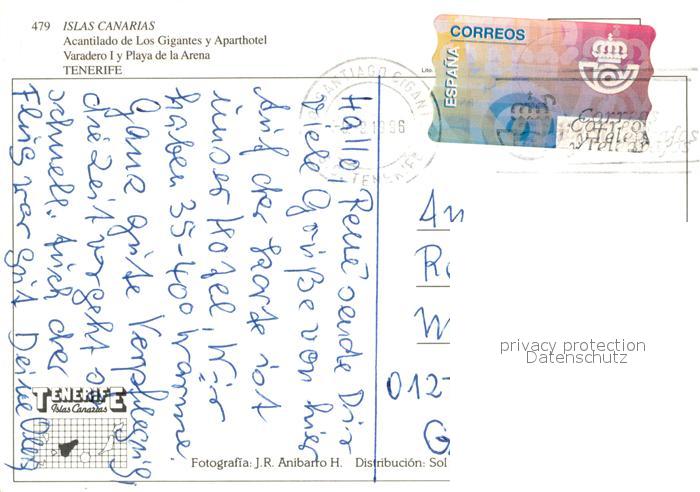 479 ISLAS CANARIAS
Acantilado de Los Gigantes y Aparthotel
Varadero I y Playa de la Arena
TENERIFE
CORREOS
ESPAÑA
SANTIAGO
TENERIFE
Hallo René sende Dir
viele Grüße von hier
Auf der Karte ist
unser Hotel. Wir
haben 35-40° warme
Ganz gute Verpflegung
die Zeit vergeht so
schnell. Auch der
Flug war gut Deine
An
W
012
privacy protection
Datenschutz
TENERIFE
Islas Canarias
Fotografía: J.R. Anibarro H. Distribución: Sol